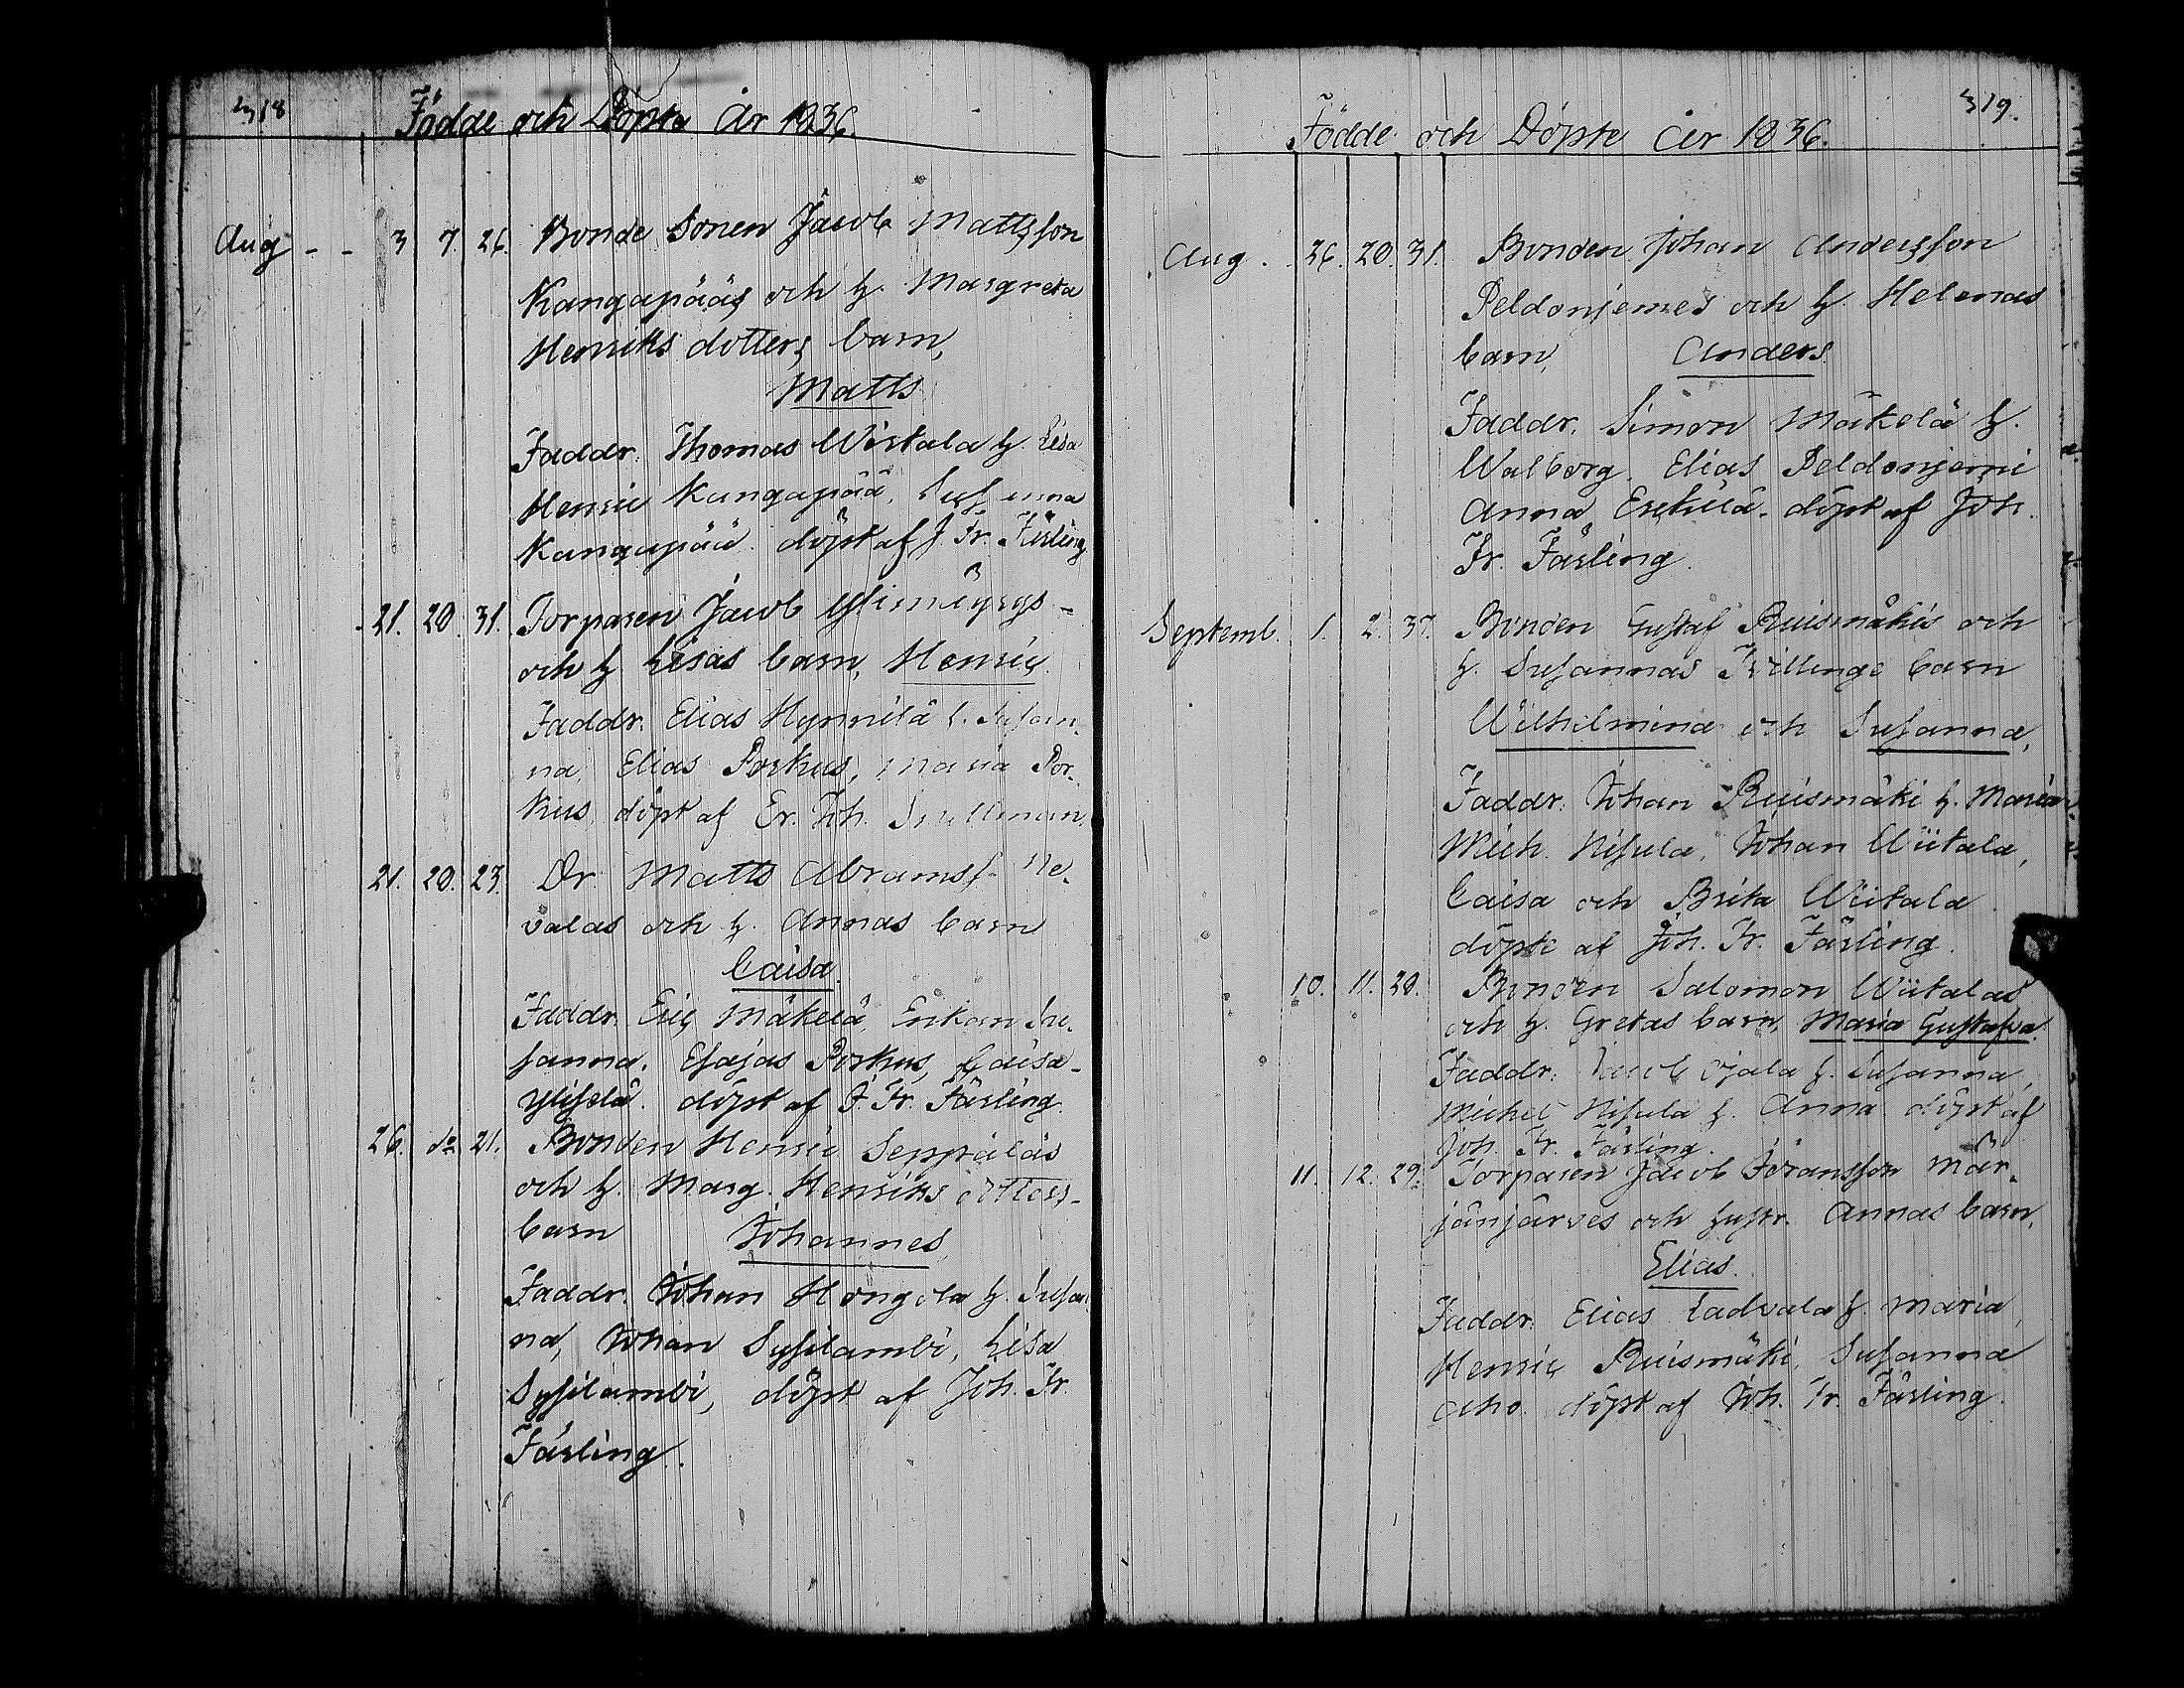 318
Födde och Döpta År 1836.
Aug - - 3 7. 26. Bonde Sonen Jacob Mattsson
Kangapääs och h. Margreta
Henriks dotters barn,
Matts
Faddr. Thomas Wistala h. Lisa
Henric Kangapää, Susanna
Kangapää. döpt af J. Fr. Färling
21. 20. 31. Torparen Jacob Ylimÿrys -
och h Lisas barn, Henric.
Faddr. Elias Hynnilä h. Susan-
na, Elias Porkus, Maria Por-
kus, döpt af Er. Joh. Snellman.
21. 20. 23. Dr. Matts Abramss. Ne-
valas och h. Annas barn
Caisa.
Faddr. Eric Mäkelä, Enkan Su-
sanna. Esajas Porkus, Caisa -
Ylisela. döpt af J. Fr. Färling.
26. do 21. Bonden Henric Seppäläs
och h. Marg. Henriks dotters -
barn Johannes
Faddr. Johan Hongola h. Susan
na, Johan Sysilambi, Lisa
Sysilambi, döpt af Joh. Fr.
Färling.
319.
Födde och Döpte År 1836.
Aug. 26. 20. 31. Bonden Johan Andersson
Peldonjemes och h. Helenas
barn, Anders.
Faddr. Simon Mäkelä h.
Walborg. Elias Peldonjemi
Anna Eskilä. döpt af Joh.
Fr. Färling.
Septemb. 1. 2. 37. Bonden Gustaf Ruismäkis och
h. Susannas Tvillinge barn
Wilhelmina och Susanna,
Faddr. Johan Ruismäki h. Maria
Mich. Nisula, Johan Wiitala,
Caisa och Brita Wiitala.
döpte af Joh. Fr. Färling.
10. 11. 20. Bonden Salomon Wiitalas
och h. Gretas barn, Maria Gustafva.
Faddr. Jacob Ojala h. Susanna,
Michel Nisula h. Anna döpt af
Joh. Fr. Färling.
11. 12. 29. Torparen Jacob Göransson Mär-
jänjärves och hustr. Annas barn,
Elias.
Faddr. Elias Ladvala h. Maria,
Henric Ruismäki, Susanna
Aho. döpt af Joh. Fr. Färling.